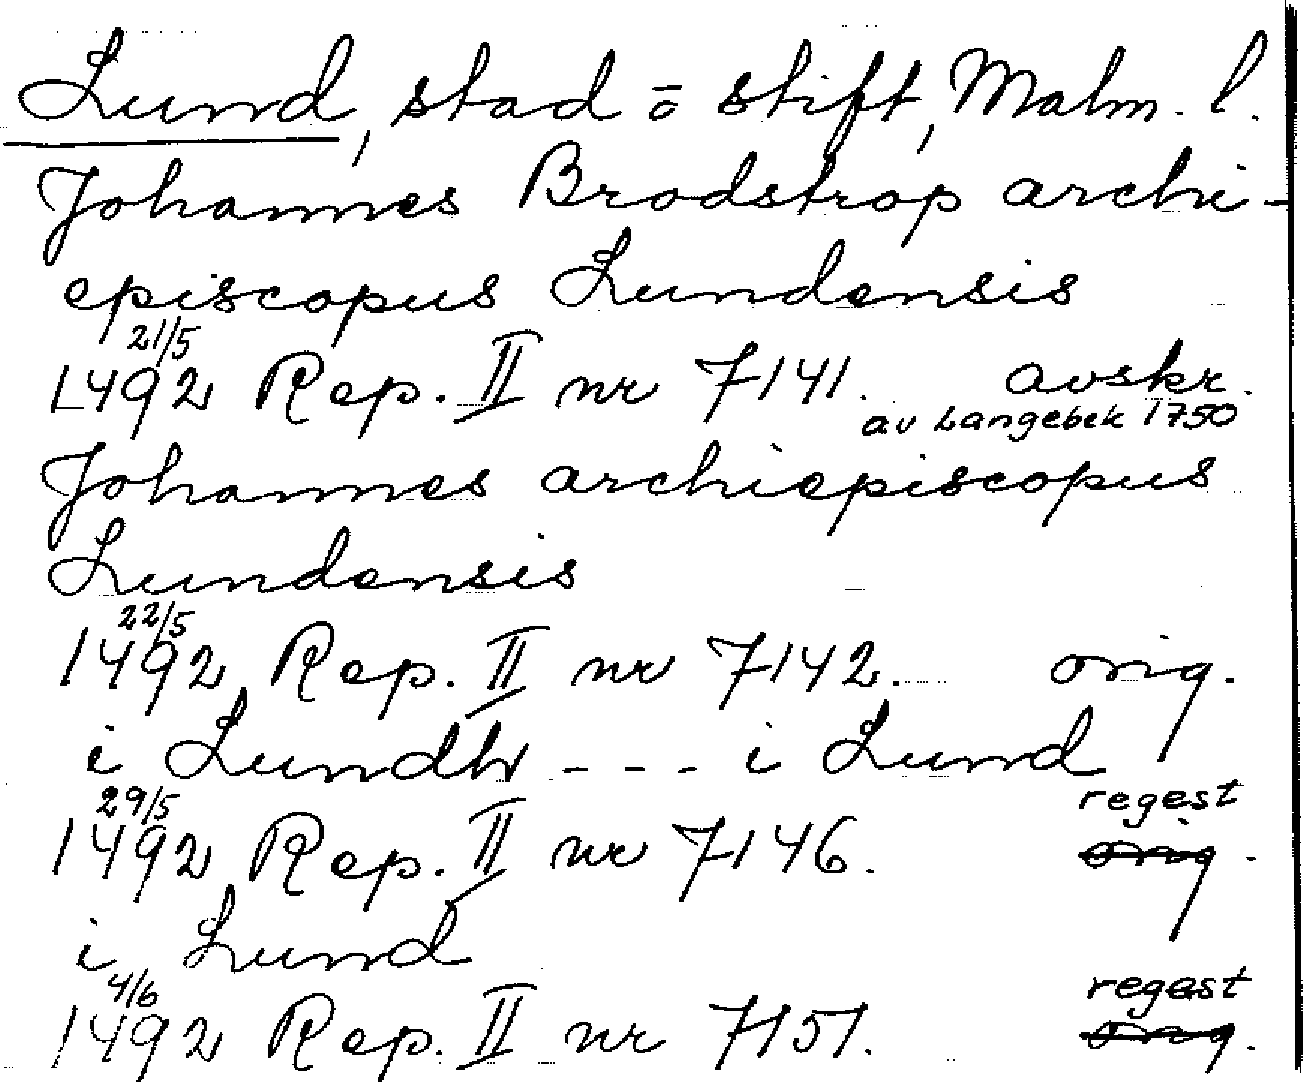 Lund, stad o stift, Malm. l.
Johannes Brodstrop archi-
episcopus Lundensis
21/5
1492 Rep. II nr 7141. avskr.
av Langebek 1750
Johannes archiepiscopus
Lundensis
22/5
1492 Rep. II nr 7142. orig.
i Lundh --- i Lund
29/5 regest
1492 Rep. II nr 7146. orig.
i Lund
4/6 regest
1492 Rep. II nr 7151. orig.